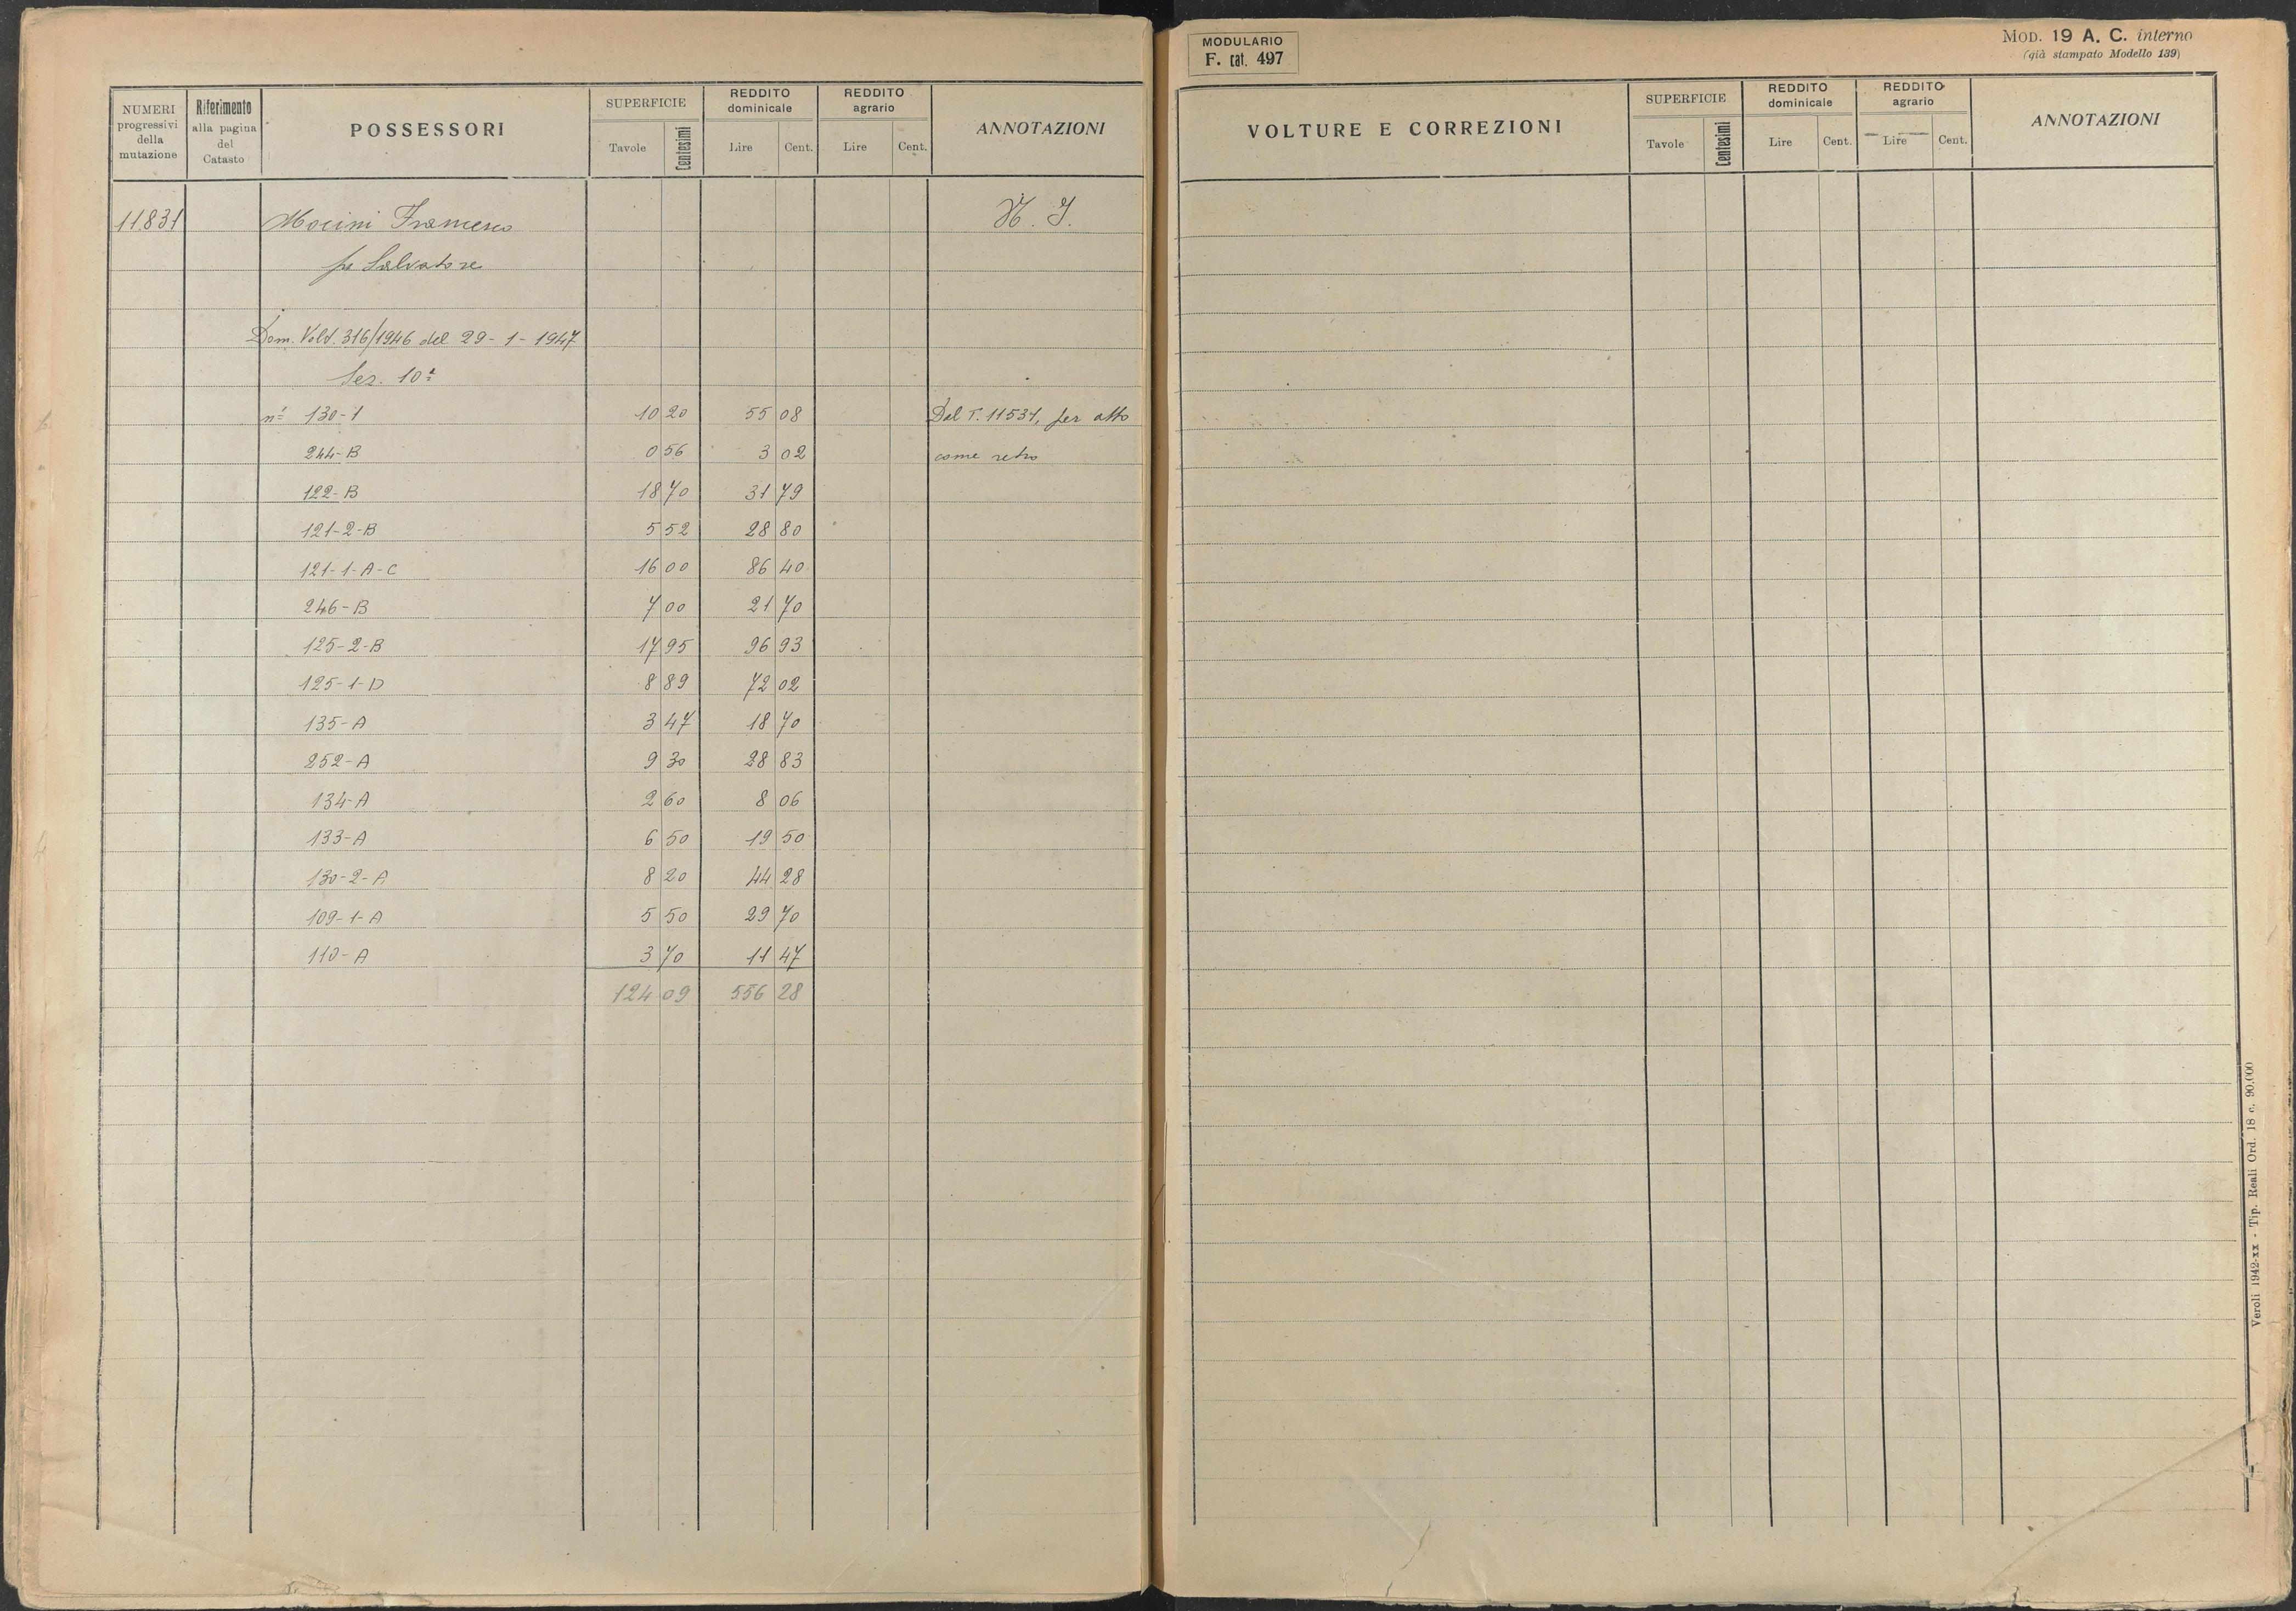 NUMERI progressivi della mutazione | Riferimento alla pagina del Catasto | POSSESSORI | SUPERFICIE Tavole Centesimi | REDDITO dominicale Lire Cent. | REDDITO agrario Lire Cent. | ANNOTAZIONI
11831 Mocini Francesco
fu Salvatore
Dom. Volt. 316/1946 del 29-1-1947
Sez. 10ª
nº 130-1 10 20 55 08 Dal P. 11531, per atto
244-B 0 56 3 02 come retro
122-B 18 70 31 79
121-2-B 5 52 28 80
121-1-A-C 16 00 86 40
246-B 7 00 21 70
125-2-B 17 95 96 93
125-1-D 8 89 72 02
135-A 3 47 18 70
252-A 9 30 28 83
134-A 2 60 8 06
133-A 6 50 19 50
130-2-A 8 20 44 28
109-1-A 5 50 29 70
110-A 3 70 11 47
124 09 556 28
MODULARIO
F. cat. 497
MOD. 19 A. C. interno
(già stampato Modello 139)
VOLTURE E CORREZIONI | SUPERFICIE Tavole Centesimi | REDDITO dominicale Lire Cent. | REDDITO agrario Lire Cent. | ANNOTAZIONI
Veroli 1942-XX - Tip. Reali Ord. 18 c. 90.000